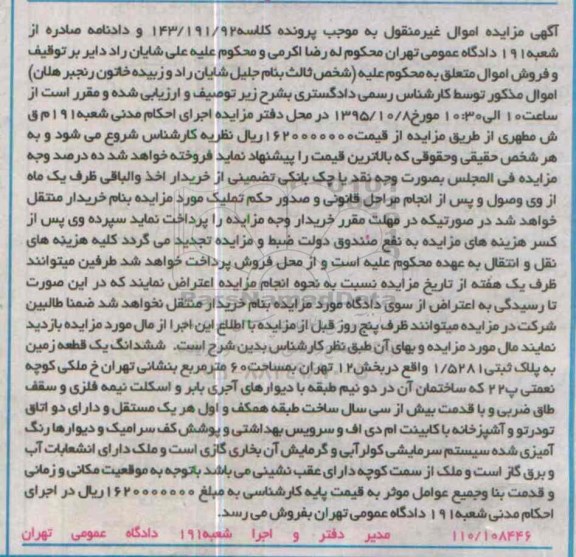 آگهی مزایده اموال غیرمنقول به موجب پرونده کلاسه۱۴۳/۱۹۱/۹۲ و دادنامه صادره از
شعبه۱۹۱ دادگاه عمومی تهران محکوم له رضا اکرمی و محکوم علیه علی شایان راد دایر بر توقیف
و فروش اموال متعلق به محکوم علیه (شخص ثالث بنام جلیل شایان راد و زبیده خاتون رنجبر هلان)
اموال مذکور توسط کارشناس رسمی دادگستری بشرح زیر توصیف و ارزیابی شده و مقرر است از
ساعت۱۰ الی۱۰:۳۰ مورخ۱۳۹۵/۱۰/۸ در محل دفتر مزایده اجرای احکام مدنی شعبه۱۹۱م ق
ش مطهری از طریق مزایده از قیمت۱۶۲۰۰۰۰۰۰۰۰ریال نظریه کارشناس شروع می شود و به
هر شخص حقیقی وحقوقی که بالاترین قیمت را پیشنهاد نماید فروخته خواهد شد ده درصد وجه
مزایده فی المجلس بصورت وجه نقد یا چک بانکی تضمینی از خریدار اخذ والباقی ظرف یک ماه
از وی وصول و پس از انجام مراحل قانونی و صدور حکم تملیک مورد مزایده بنام خریدار منتقل
خواهد شد در صورتیکه در مهلت مقرر خریدار وجه مزایده را پرداخت نماید سپرده وی پس از
کسر هزینه های مزایده به نفع صندوق دولت ضبط و مزایده تجدید می گردد کلیه هزینه های
نقل و انتقال به عهده محکوم علیه است و از محل فروش پرداخت خواهد شد طرفین میتوانند
ظرف یک هفته از تاریخ مزایده نسبت به نحوه انجام مزایده اعتراض نمایند که در این صورت
تا رسیدگی به اعتراض از سوی دادگاه مورد مزایده بنام خریدار منتقل نخواهد شد ضمنا طالبین
شرکت در مزایده میتوانند ظرف پنج روز قبل از مزایده با اطلاع این اجرا از مال مورد مزایده بازدید
نمایند مال مورد مزایده و بهای آن طبق نظر کارشناس بدین شرح است. ششدانگ یک قطعه زمین
به پلاک ثبتی۱/۵۲۸۱ واقع دربخش۱۲ تهران بمساحت۶۰ مترمربع بنشانی تهران خ ملکی کوچه
نعمتی پ۲۲ که ساختمان آن در دو نیم طبقه با دیوارهای آجری بابر و اسکلت نیمه فلزی و سقف
طاق ضربی و با قدمت بیش از سی سال ساخت طبقه همکف و اول هر یک مستقل و دارای دو اتاق
تودرتو و آشپزخانه با کابینت ام دی اف و سرویس بهداشتی و پوشش کف سرامیک و دیوارها رنگ
آمیزی شده سیستم سرمایشی کولرآبی و گرمایش آن بخاری گازی است و ملک دارای انشعابات آب
و برق گاز است و ملک از سمت کوچه دارای عقب نشینی می باشد باتوجه به موقعیت مکانی و زمانی
و قدمت بنا وجمیع عوامل موثر به قیمت پایه کارشناسی به مبلغ ۱۶۲۰۰۰۰۰۰۰۰ریال در اجرای
احکام مدنی شعبه۱۹۱ دادگاه عمومی تهران بفروش می رسد.
۱۱۰/۱۰۸۴۴۶ مدیر دفتر و اجرا شعبه۱۹۱ دادگاه عمومی تهران